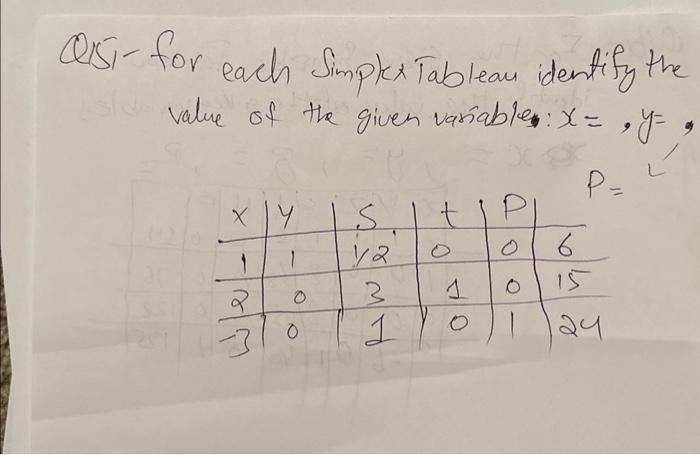 Q15,- for each Simplex Tableau identify the
value of the given variables: x= , y= ,
P=
x y s t P
1 1 1/2 0 0 6
2 0 3 1 0 15
-3 0 1 0 1 24